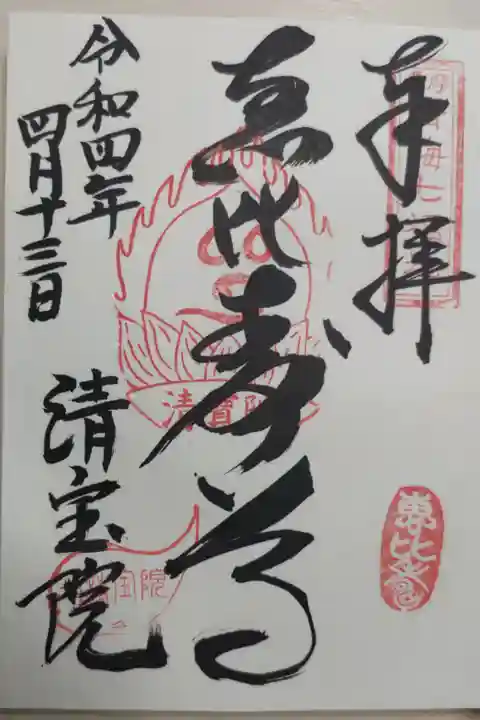 奉拝
恵比寿尊
令和四年
四月十三日
清宝院
清寳院
恵比寿